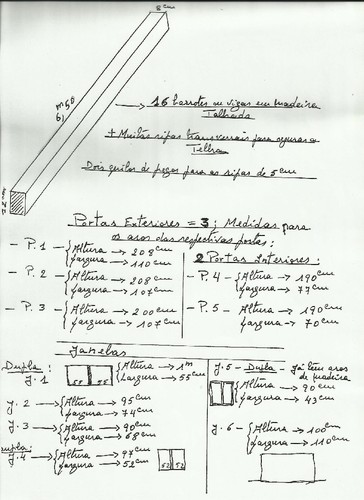 8 cm
→ 16 barrotes ou vigas em madeira
Talhada
+ Muitas ripas transversais para segurar a
Telha
Dois quilos de pregos para as ripas de 5 cm
Portas Exteriores = 3: Medidas para
os aros das respectivas portas:
- P. 1 - { Altura → 208 cm
largura → 110 cm
- P. 2 - { Altura → 208 cm
largura → 107 cm
- P. 3 - { Altura → 200 cm
largura → 107 cm
2 Portas Interiores:
- P. 4 - { Altura → 190 cm
largura → 77 cm
- P. 5 - { Altura → 190 cm
largura → 70 cm
Janelas
Dupla:
J. 1
55 55
{ Altura → 1 m
Largura → 55 cm
J. 2 → { Altura → 95 cm
largura → 74 cm
J. 3 → { Altura → 90 cm
largura → 68 cm
Dupla:
J. 4 → { Altura → 97 cm
largura → 52 cm
52 52
J. 5 - Dupla - Já tem aros
de madeira
{ Altura → 90 cm
largura → 43 cm
J. 6 - { Altura → 100 cm
largura → 110 cm